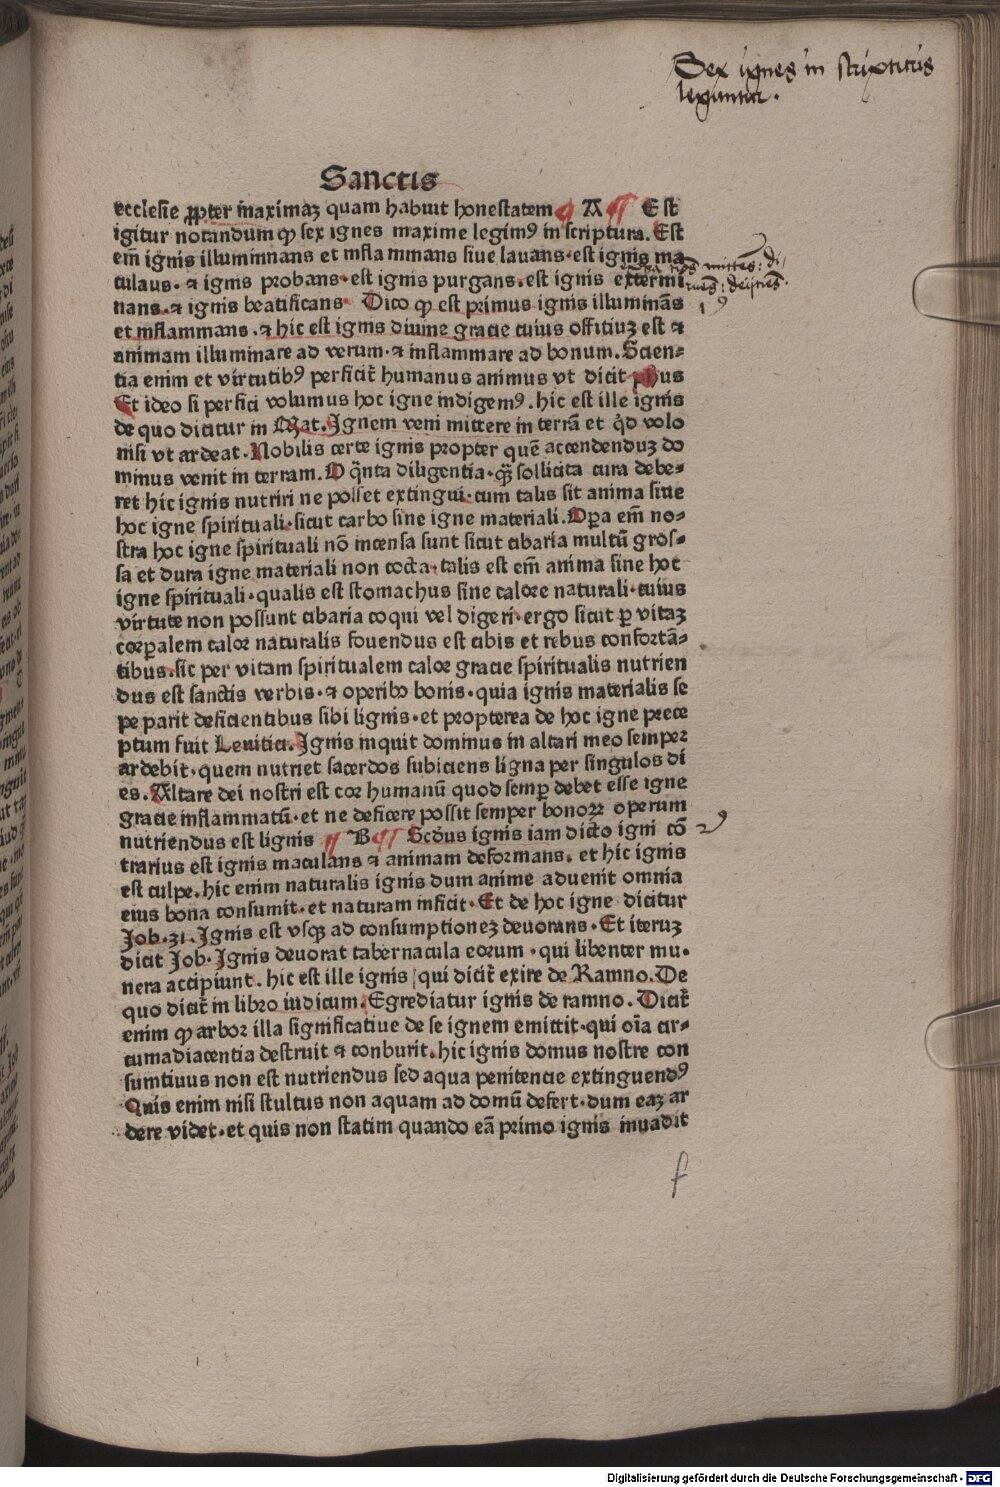 Sex ignes in scripturis
leguntur.
Sanctis
ecclesie ꝓpter maximaꝫ quam habuit honestatem ¶ A ¶ Est
igitur notandum ꝙ sex ignes maxime legimꝰ in scriptura. Est
em̄ ignis illuminans et inflammans siue lauans·est ignis ma
culans·⁊ ignis probans·est ignis purgans.est ignis extermi
nans.⁊ ignis beatificans· Dico ꝙ est primus ignis illumināns
et inflammans·⁊ hic est ignis diuine gracie cuius offitiuꝫ est ⁊
animam illuminare ad verum·⁊ inflammare ad bonum. Scien⸗
tia enim et virtutibꝰ perficit̄ humanus animus vt dicit ph̄us
Et ideo si perfici volumus hoc igne indigemꝰ. hic est ille ignis
de quo dicitur in Mat. Ignem veni mittere in terrā et q̇d volo
nisi vt ardeat. Nobilis certe ignis propter quē accendenduꝫ do
minus venit in terram. O q̄nta diligentia·q̄ꝫ sollicita cura debe⸗
ret hic ignis nutriri ne posset extingui·cum talis sit anima siue
hoc igne spirituali·sicut carbo sine igne materiali. Oꝑa em̄ no⸗
stra hoc igne spirituali nō incensa sunt sicut cibaria multū gros⸗
sa et dura igne materiali non cocta·talis est em̄ anima sine hoc
igne spirituali·qualis est stomachus sine calore naturali·cuius
virtute non possunt cibaria coqui vel digeri·ergo sicut ꝑ vitaꝫ
corꝑalem calor naturalis fouendus est cibis et rebus confortā⸗
tibus.sic per vitam spiritualem calor gracie spiritualis nutrien
dus est sanctis verbis·⁊ operibꝰ bonis·quia ignis materialis se
pe parit deficientibus sibi lignis·et propterea de hoc igne prece
ptum fuit Leuitici. Ignis inquit dominus in altari meo semper
ardebit·quem nutriet sacerdos subiciens ligna per singulos di
es. Altare dei nostri est cor humanū quod semꝑ debet esse igne
gracie inflammatū·et ne deficere possit semper bonoꝝ operum
nutriendus est lignis ¶ B ¶ Scd̄us ignis iam dicto igni cō
trarius est ignis maculans ⁊ animam deformans. et hic ignis
est culpe.hic enim naturalis ignis dum anime aduenit omnia
eius bona consumit·et naturam inficit·Et de hoc igne dicitur
Job·31. Ignis est vsqꝫ ad consumptioneꝫ deuorans·Et iteruꝫ
dicit Job·Ignis deuorat tabernacula eorum·qui libenter mu·
nera accipiunt·hic est ille ignis qui dicit̄ exire de Ramno. De
quo dicit̄ in libro iudicum. Egrediatur ignis de ramno. Dicit̄
enim ꝙ arbor illa significatiue de se ignem emittit·qui oīa cir⸗
cumadiacentia destruit ⁊ conburit.hic ignis domus nostre con
sumtiuus non est nutriendus sed aqua penitencie extinguendꝰ
Quis enim nisi stultus non aquam ad domū defert·dum eaꝫ ar
dere videt·et quis non statim quando eā primo ignis inuadit
f
Digitalisierung gefördert durch die Deutsche Forschungsgemeinschaft - DFG